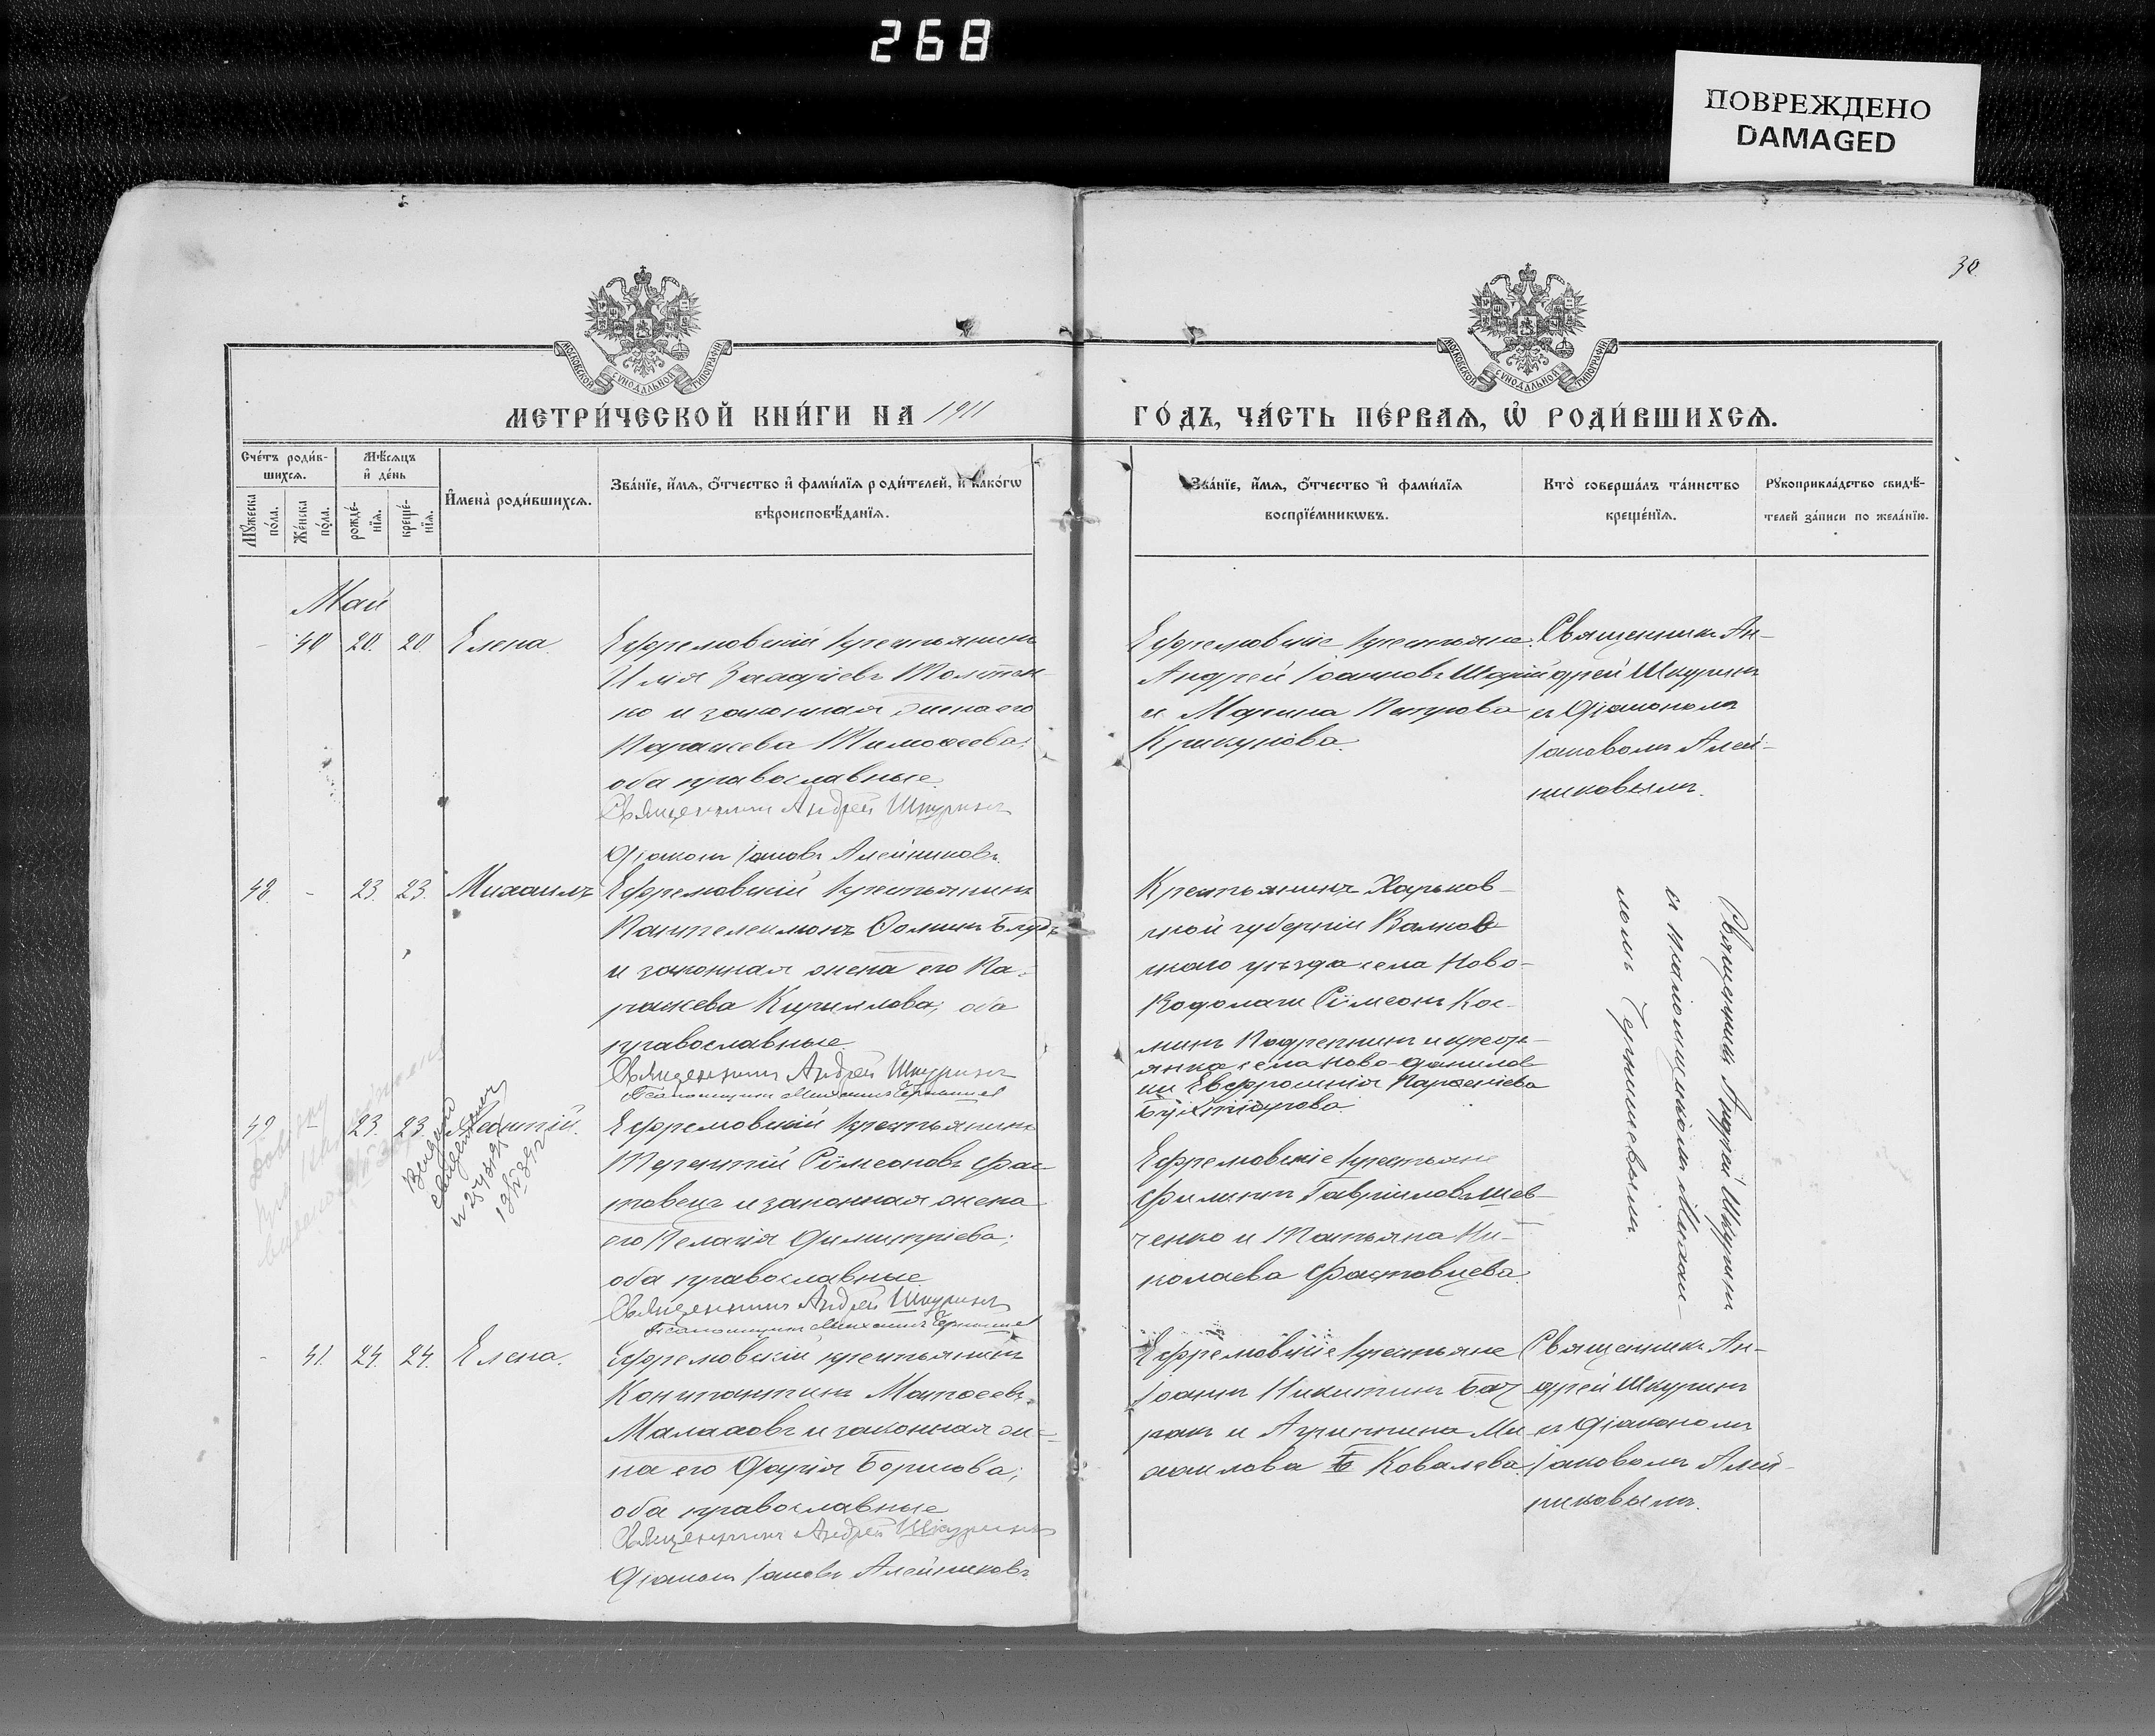 268
ПОВРЕЖДЕНО
DAMAGED
30.
МОСКОВСКОЙ СѴНОДАЛЬНОЙ ТИПОГРАФІИ
МОСКОВСКОЙ СѴНОДАЛЬНОЙ ТИПОГРАФІИ
МЕТРИ́ЧЕСКОЙ КНИ́ГИ НА 1911
ГО́ДЪ, ЧА́СТЬ ПЕ́РВАѦ, Ѡ҆ РОДИ́ВШИХСѦ.
Сче́тъ роди́в-
шихсѧ.
Мꙋ́жеска по́ла.
Же́нска по́ла.
Мѣ́сѧцъ
и҆ де́нь
рожде́-
нїѧ.
креще́-
нїѧ.
И҆мена̀ роди́вшихсѧ.
Зва́нїе, и҆́мѧ, ѻ҆́тчество и҆ фами́лїѧ роди́телей, и҆ како́гѡ
вѣроисповѣ́данїѧ.
Зва́нїе, и҆́мѧ, ѻ҆́тчество и҆ фами́лїѧ
воспрїе́мникѡвъ.
Кто̀ соверша́лъ та́инство
креще́нїѧ.
Рꙋкоприкла́дство свидѣ́-
телей за́писи по жела́нїю.
Май
- 40 20. 20. Елена.
Ефремовскій крестьянинъ
Илія Захаріевъ Толстен-
ко и законная жена его
Параскева Тимоѳеова;
оба православные.
Священникъ Андрей Шкуринъ
Діаконъ Іаковъ Алейниковъ.
Ефремовскіе крестьяне
Андрей Іоанновъ Шарій
и Марина Петрова
Крикунова.
Священникъ Ан-
дрей Шкуринъ
съ Діакономъ
Іаковомъ Алей-
никовымъ.
48. - 23. 23. Михаилъ
Ефремовскій крестьянинъ
Пантелеимонъ Ѳоминъ
и законная жена его Па-
раскева Кириллова; оба
православные.
Священникъ Андрей Шкуринъ
Псаломщикъ Михаилъ
Крестьянинъ Харьков-
ской губерніи Валков
скаго уѣзда села Ново-
Водолаги Сѵмеонъ Кос-
минъ и кресть-
янка села Ново-
Евфросинія Парѳеніева
Священникъ Андрей Шкуринъ
съ псаломщикомъ Михаи-
ломъ
49. - 23. 23. Леонтій.
Выдано
свидѣтельст
Ефремовскій крестьянинъ
Терентій Сѵмеоновъ Фас-
товецъ и законная жена
его Пелагія Димитріева;
оба православные
Священникъ Андрей Шкуринъ
Псаломщикъ Михаилъ
Ефремовскіе крестьяне
Филиппъ Гавріиловъ Шев-
ченко и Татьяна Ни-
колаева Фастовцева.
- 41. 24. 24. Елена.
Ефремовскій крестьянинъ
Константинъ Матѳеевъ
Малаховъ и законная же-
на его Дарія Борисова;
оба православные
Священникъ Андрей Шкуринъ
Діаконъ Іаковъ Алейниковъ.
Ефремовскіе крестьяне
Іоаннъ Никитинъ
и Агриппина Ми
хаилова Ковалева.
Священникъ Ан-
дрей Шкуринъ
съ Діакономъ
Іаковомъ Алей-
никовымъ.